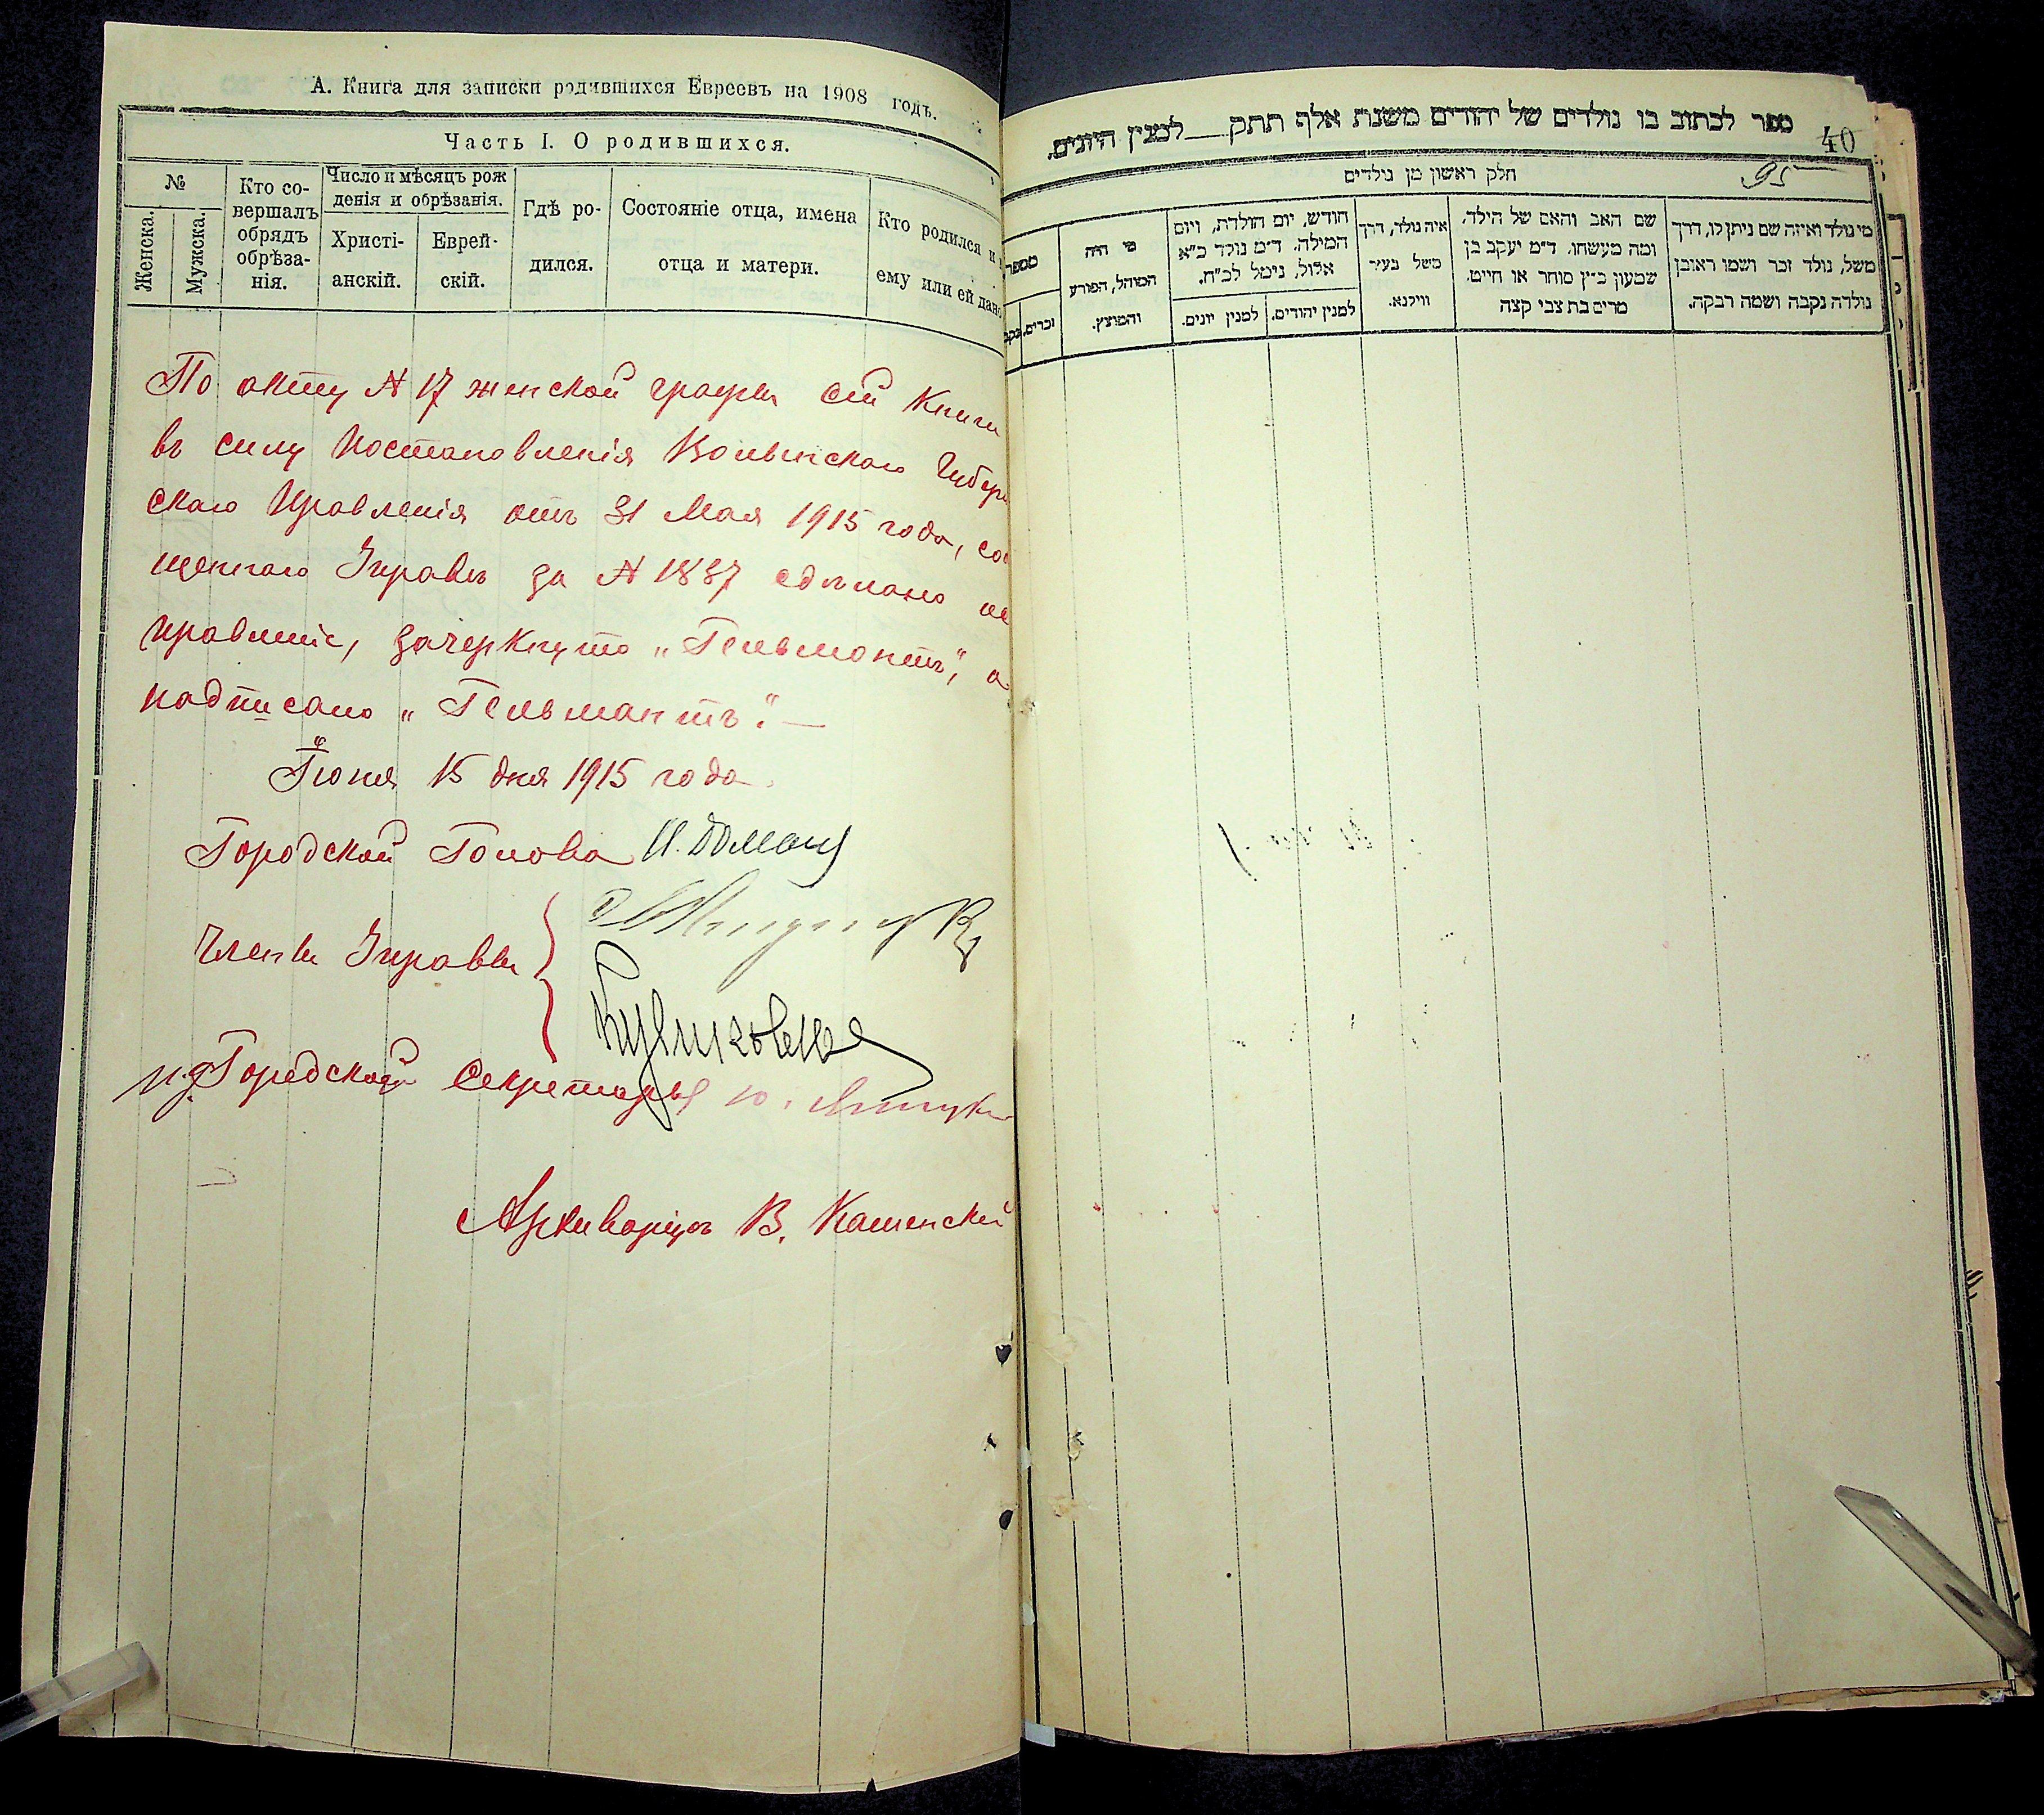 А. Книга для записки родившихся Евреевъ на 1908 годъ.
Часть I. О родившихся.
№
Женска.
Мужска.
Кто со-
вершалъ
обрядъ
обрѣза-
нія.
Число и мѣсяцъ рож
денія и обрѣзанія.
Христі-
анскій.
Еврей-
скій.
Гдѣ ро-
дился.
Состояніе отца, имена
отца и матери.
Кто родился и
ему или ей дано
По акту № 17 женской графы сей Книги
въ силу Постановленія Волынскаго Губерн
скаго Правленія отъ 31 Мая 1915 года, соо
щеннаго Управѣ за № 1887 сдѣлано ис
правленіе, зачеркнуто „Гельмонтъ", а
надписано „Гельмантъ".—
Іюня 15 дня 1915 года.
Городской Голова
Члены Управы
и.д. Городской Секретарь
Архиваріусъ В. Каменскій
ספר לכתוב בו נולדים של יהודים משנת אלף תתק — למנין היונים.
40
95
חלק ראשון מן נולדים
מספר
זכרים.
נקב
מי היה
המוהל, הפורע
והמוצץ.
חודש, יום הולדת, ויום
המילה. ד״מ נולד כ״א
אלול, נימל לכ״ח.
למנין יונים.
למנין יהודים.
איה נולד, דרך
משל בעיר
ווילנא.
שם האב והאם של הילד,
ומה מעשהו, ד״מ יעקב בן
שמעון כ״ץ סוחר או חייט,
מרים בת צבי קצה
מי נולד ואיזה שם ניתן לו, דרך
משל, נולד זכר ושמו ראובן
נולדה נקבה ושמה רבקה.